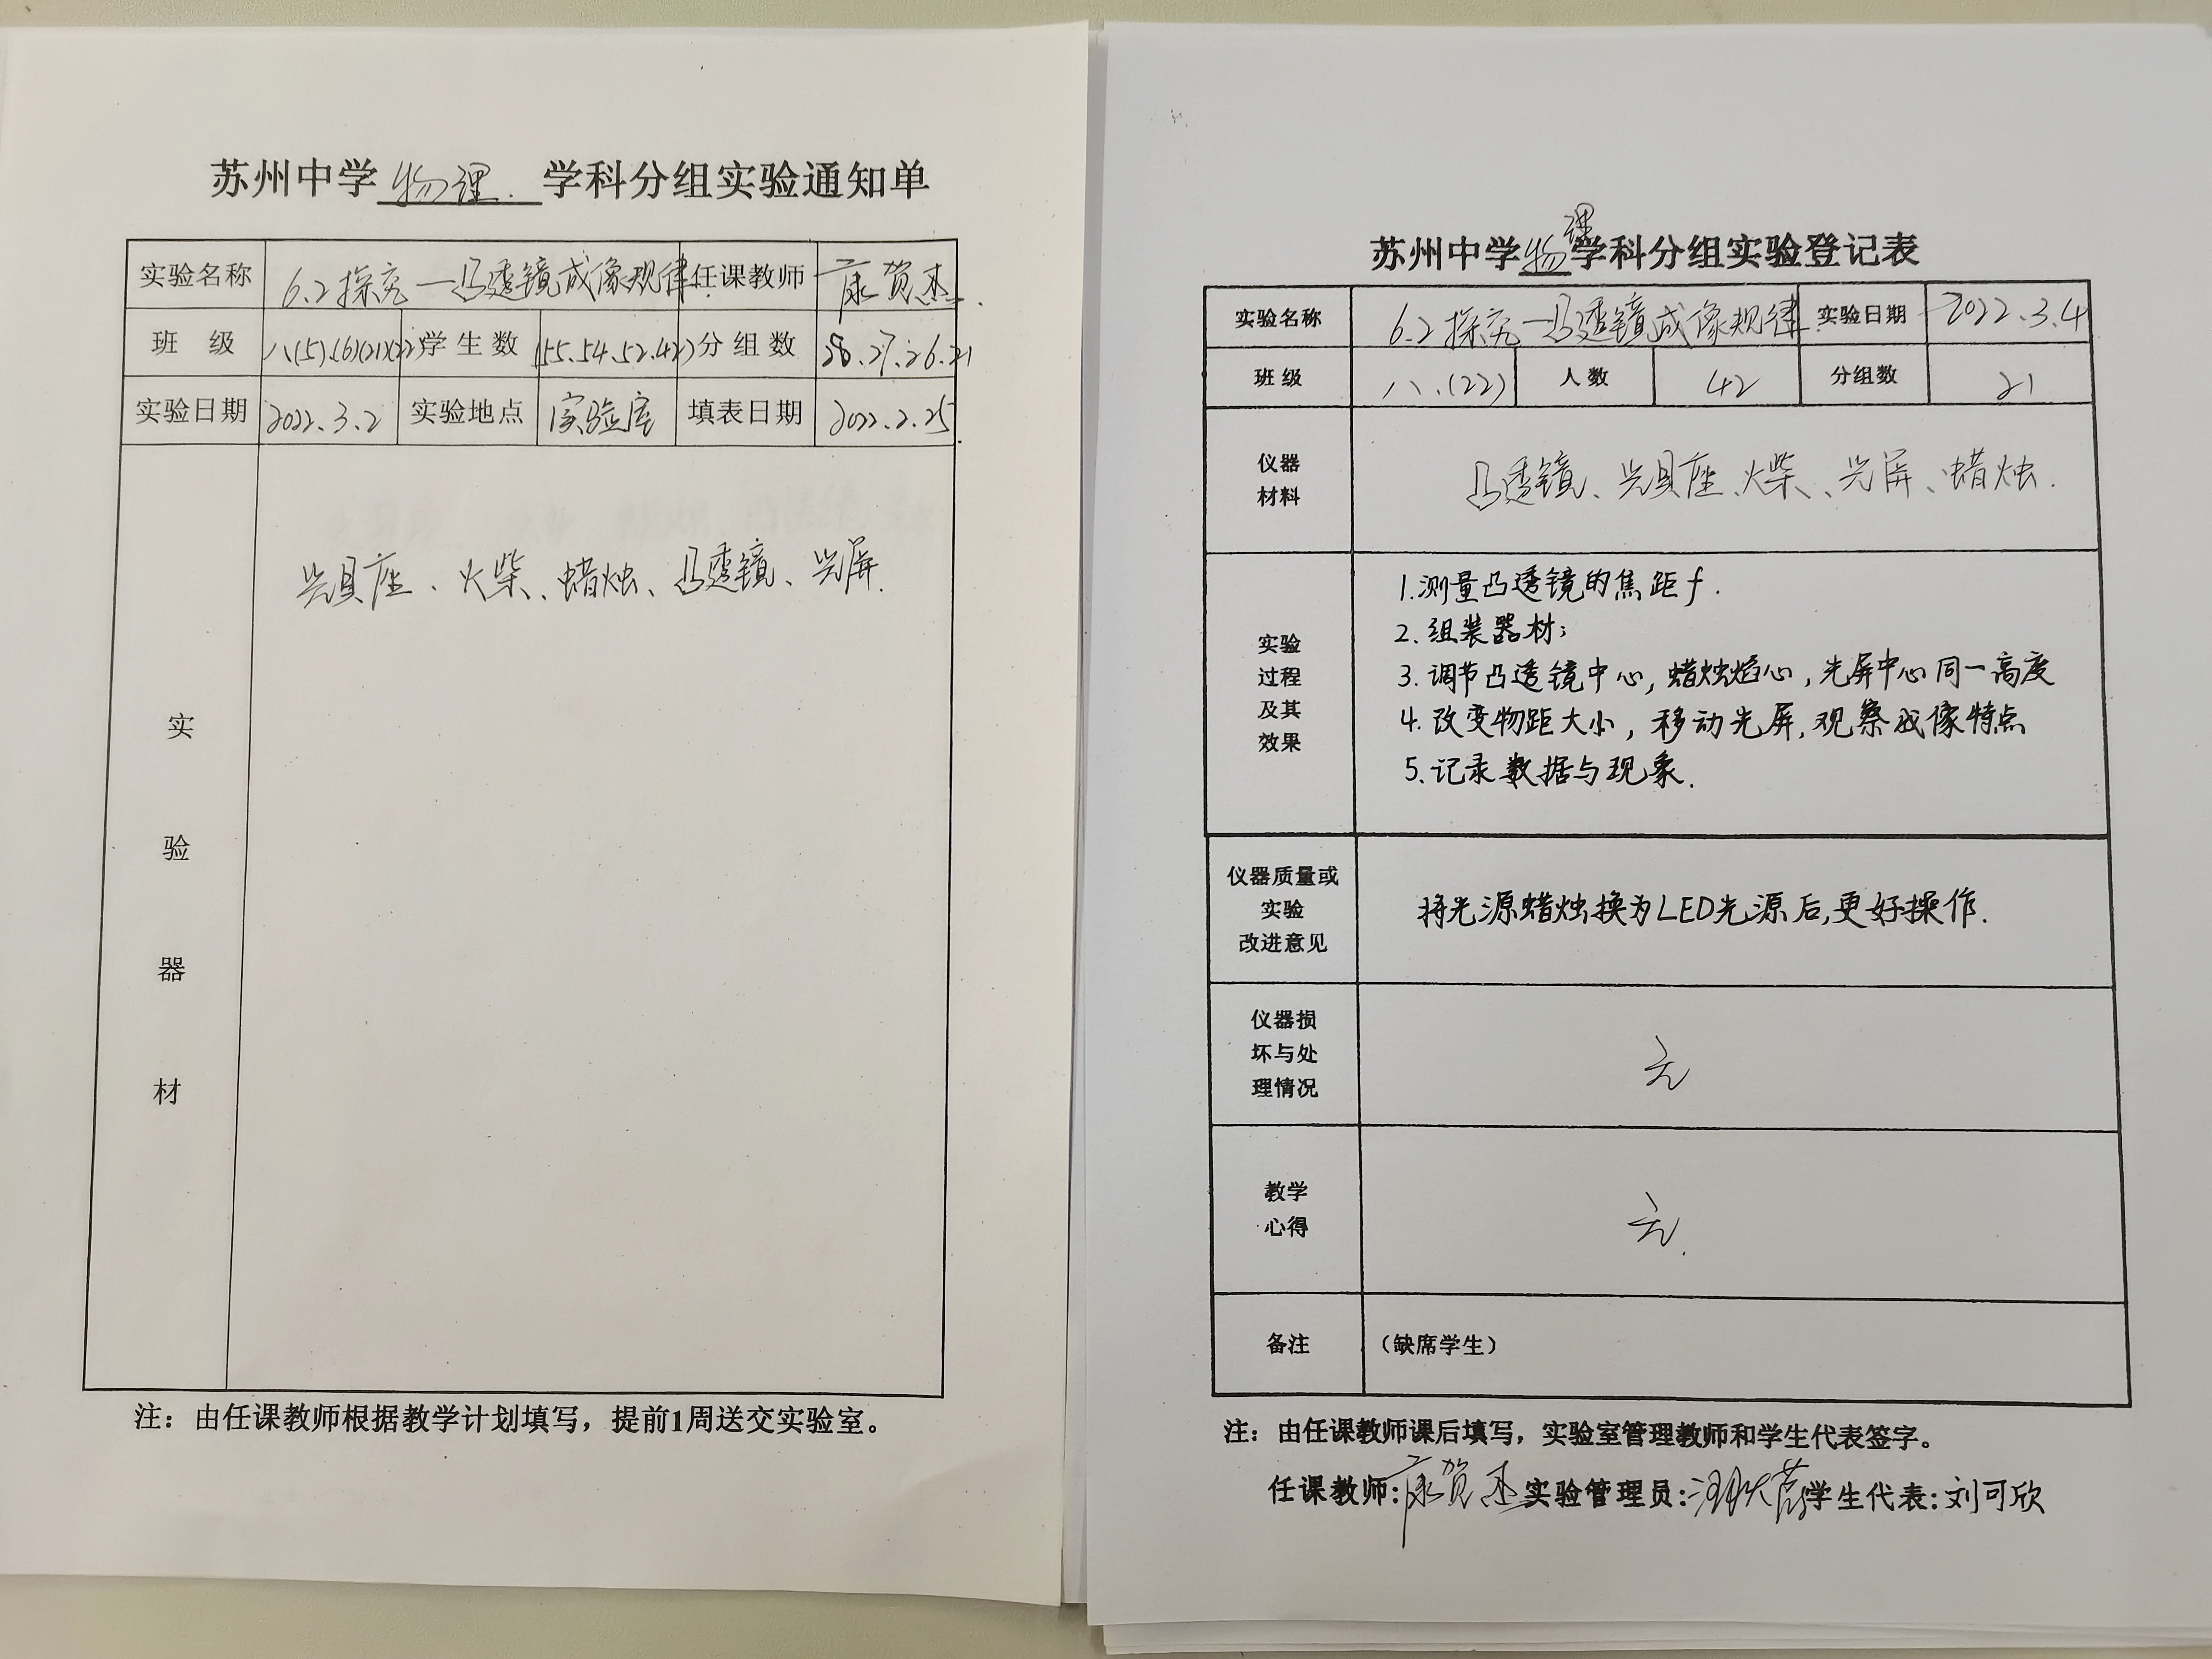 苏州中学物理学科分组实验通知单
实验名称 6.2探究—凸透镜成像规律 任课教师 康贺杰
班 级 八(5)、(6)(21)(22) 学生数 (55、54、52、42) 分组数 28、27、26、21
实验日期 2022、3、2 实验地点 实验室 填表日期 2022、2、25
实验器材
光具座、火柴、蜡烛、凸透镜、光屏.
注：由任课教师根据教学计划填写，提前1周送交实验室。
苏州中学物理学科分组实验登记表
实验名称 6.2探究—凸透镜成像规律 实验日期 2022.3.4
班级 八、(22) 人数 42 分组数 21
仪器材料 凸透镜、光具座、火柴、光屏、蜡烛.
实验过程及其效果
1.测量凸透镜的焦距f.
2.组装器材;
3.调节凸透镜中心,蜡烛焰心,光屏中心同一高度
4.改变物距大小,移动光屏,观察成像特点
5.记录数据与现象.
仪器质量或实验改进意见 将光源蜡烛换为LED光源后,更好操作.
仪器损坏与处理情况 无
教学心得 无.
备注 （缺席学生）
注：由任课教师课后填写，实验室管理教师和学生代表签字。
任课教师:康贺杰 实验管理员: 学生代表:刘可欣